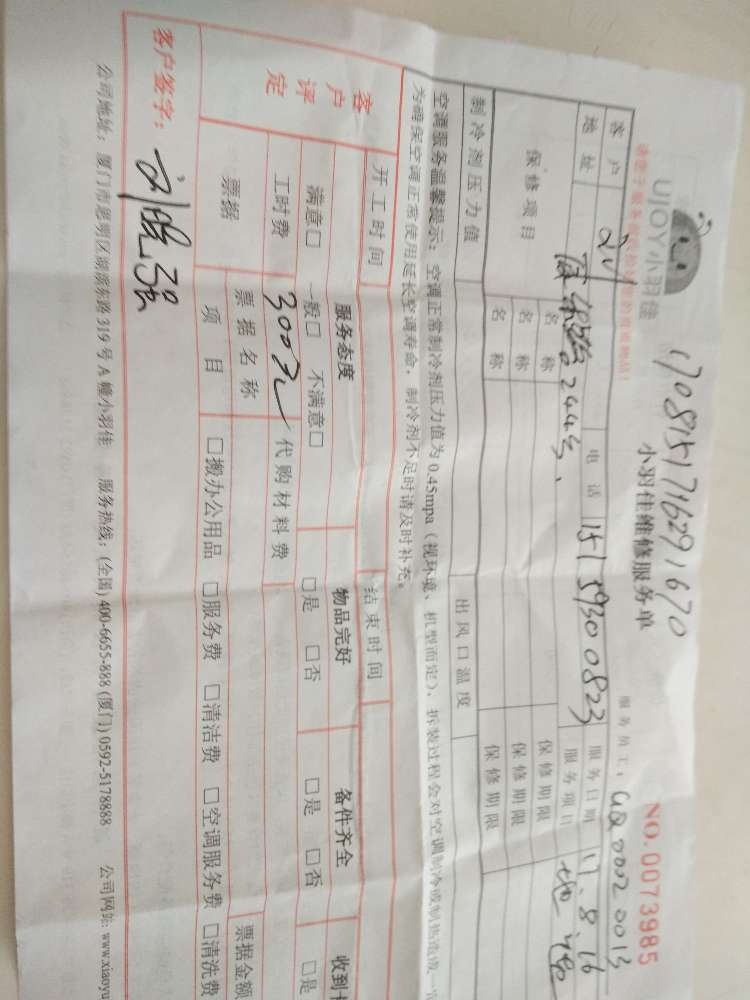 1708151716291670
UJOY小羽佳
小羽佳维修服务单
服务员工：
NO.0073985
客户
电话 15159300823
服务日期 17.8.16
地址
244号
服务项目
保修项目 名称 保修期限
名称 保修期限
名称 保修期限
制冷剂压力值 出风口温度
空调服务温馨提示：空调正常制冷剂压力值为0.45mpa（视环境、机型而定），拆装过程会对空调制冷或制热造成一
为确保空调正常使用延长空调寿命，制冷剂不足时请及时补充。
开工时间 结束时间
客户评定
服务态度 物品完好 备件齐全 收到
满意□ 一般□ 不满意□ □是 □否 □是 □否 □是
工时费 300元 代购材料费
票据 票据名称 票据金额
项目 □搬办公用品 □服务费 □清洁费 □空调服务费 □清洗费
客户签字：
公司地址：厦门市思明区湖滨东路319号A幢小羽佳 服务热线：(全国)400-6655-888 (厦门)0592-5178888 公司网站：www.xiaoyu